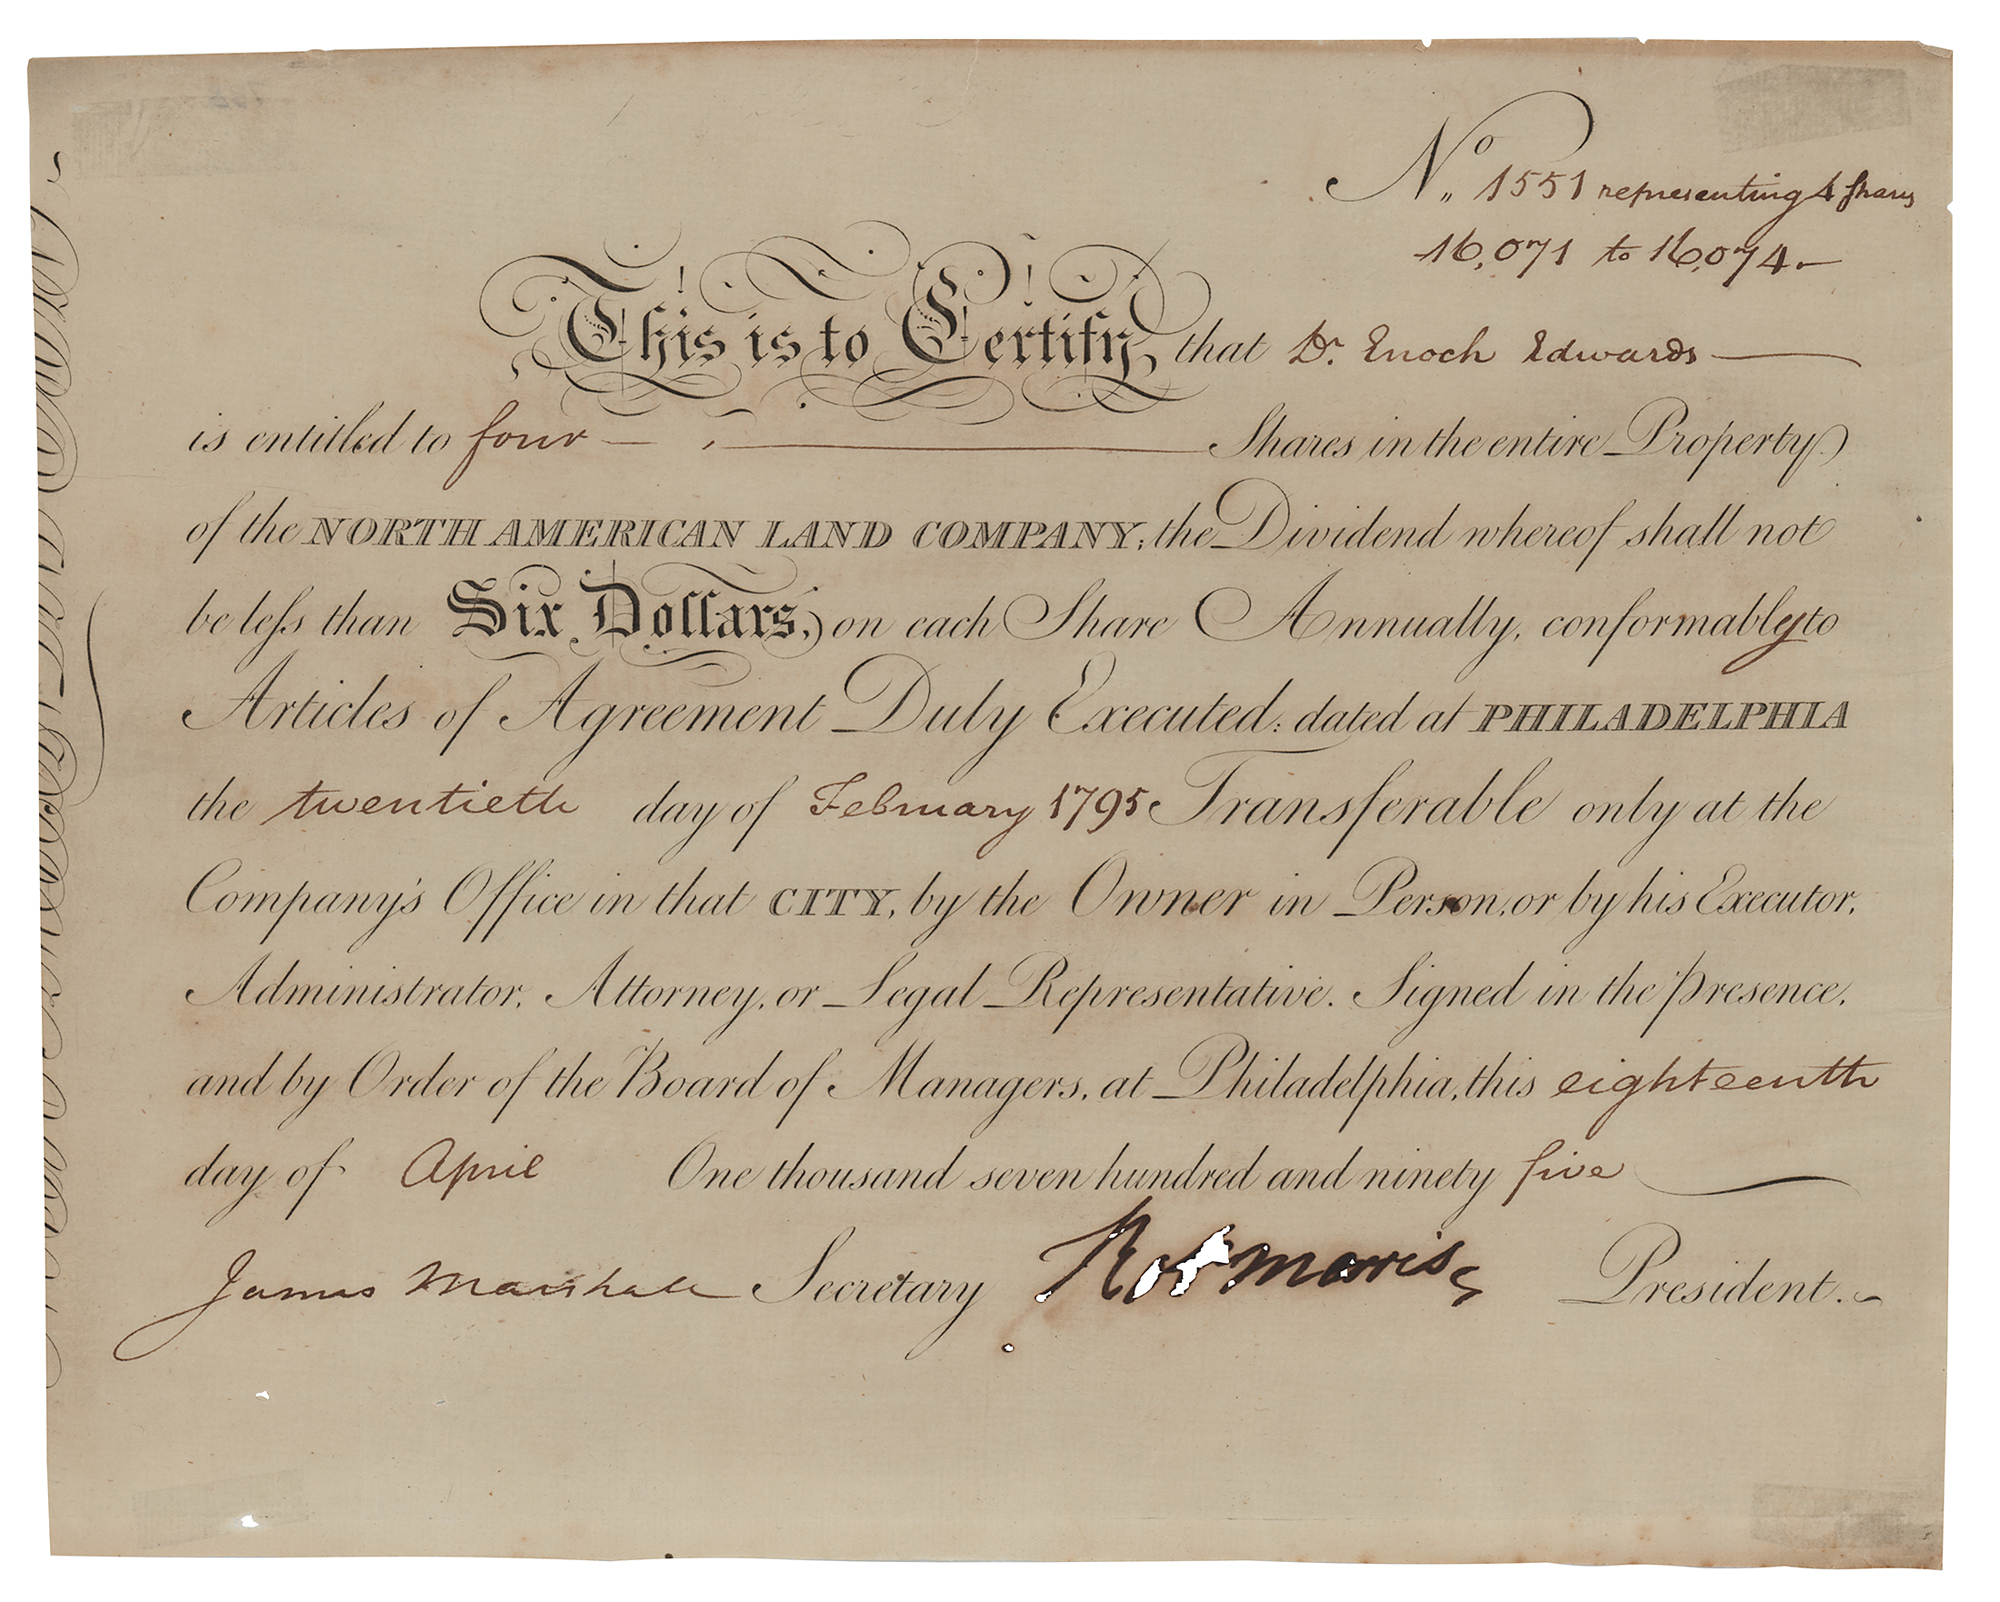 No. 1551 representing 4 shares
16,071 to 16,074.
This is to Certify, that Dr. Enoch Edwards
is entitled to four Shares in the entire Property
of the NORTH AMERICAN LAND COMPANY; the Dividend whereof shall not
be leſs than Six Dollars, on each Share Annually, conformably to
Articles of Agreement Duly Executed: dated at PHILADELPHIA
the twentieth day of February 1795 Transferable only at the
Company's Office in that CITY, by the Owner in Person, or by his Executor,
Administrator, Attorney, or Legal Representative. Signed in the presence,
and by Order of the Board of Managers, at Philadelphia, this eighteenth
day of April One thousand seven hundred and ninety five
James Marshall Secretary Rob Morris President.